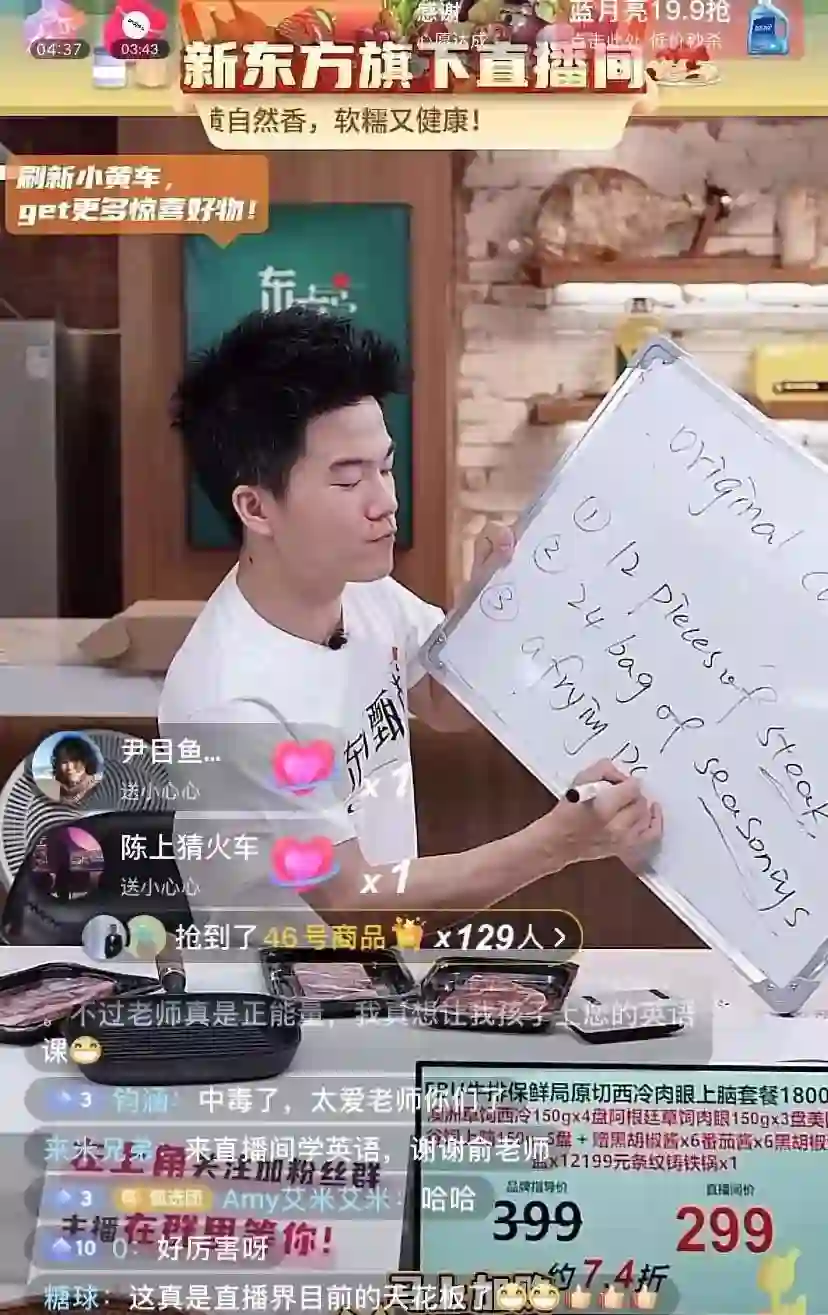 04:37
03:43
感谢
心愿达成
蓝月亮19.9抢
点击此处 低价秒杀
新东方旗下直播间
黄自然香，软糯又健康！
刷新小黄车，
get更多惊喜好物！
东
original
① 12 pieces of steak
② 24 bag of seasonings
③ a frying pa
东方甄
尹目鱼...
送小心心
x1
陈上猜火车
送小心心
x1
抢到了46号商品 x129人 >
。不过老师真是正能量，我真想让我孩子上您的英语
课😁
3 钧涵：中毒了，太爱老师你们了
来米兄弟：来直播间学英语，谢谢俞老师
3 甄选团 Amy艾米艾米：哈哈
10 0：好厉害呀
糖球：这真是直播界目前的天花板了😁😁👍👍👍
左上角关注加粉丝群
主播在群里等你！
牛排保鲜局原切西冷肉眼上脑套餐1800
澳洲草饲西冷150gx4盘阿根廷草饲肉眼150gx3盘美
谷饲上脑150g 5盘 + 赠黑胡椒酱x6番茄酱x6黑胡椒
盐x12199元条纹铸铁锅x1
品牌指导价
399
直播间价
299
约7.4折